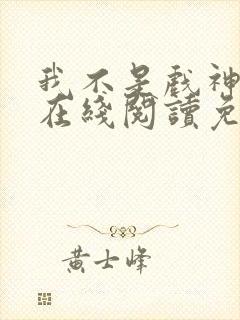 我不是戲神
在綫閱讀免
黄士峰